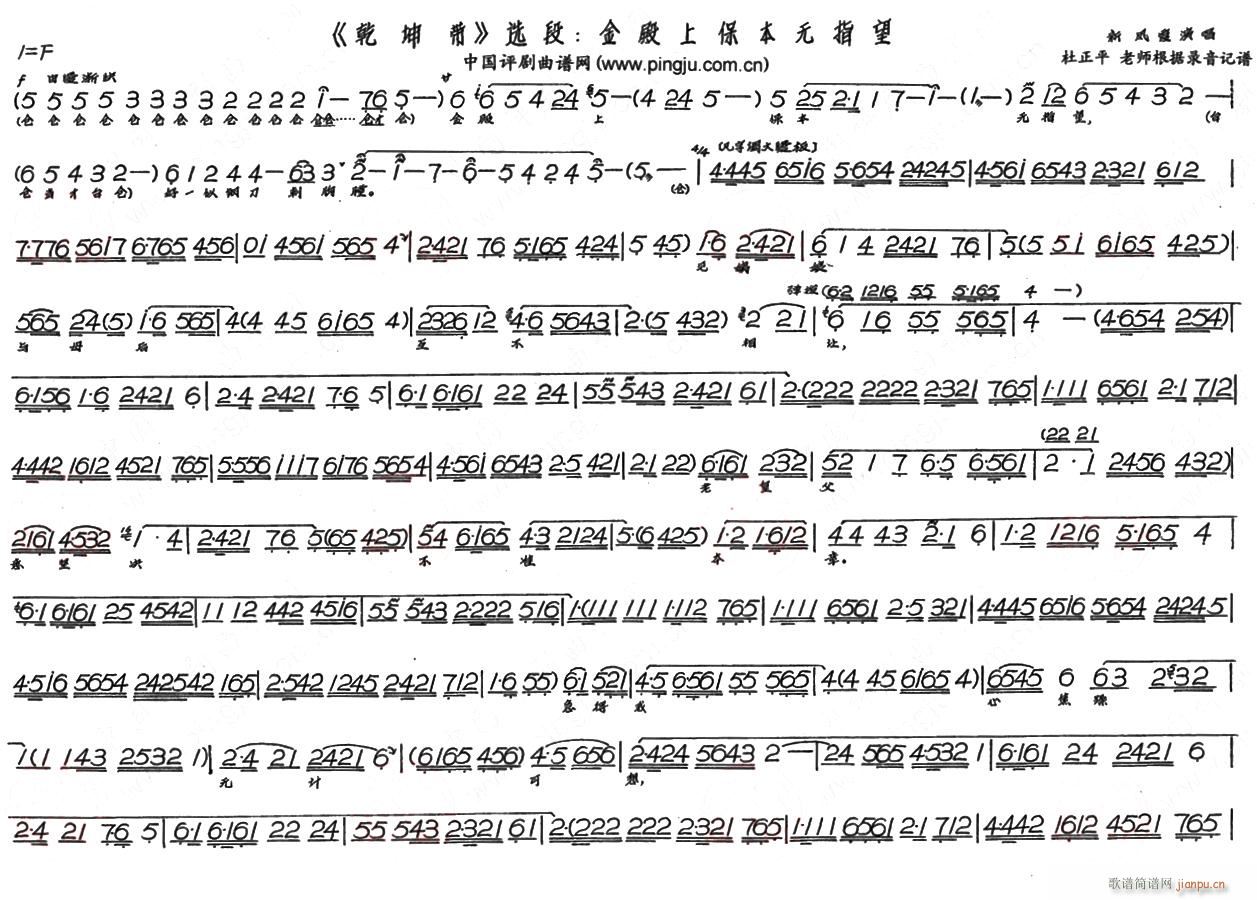 《乾坤带》选段:金殿上保本无指望
1=F
新凤霞演唱
中国评剧曲谱网(www.pingju.com.cn)
杜正平 老师根据录音记谱
f 由慢渐快 サ
(5 5 5 5 3 3 3 3 2 2 2 2 i — 76 5 —) 6 i6 5 4 24 5 — (4 24 5 —) 5 25 2·1 1 7 — i — (1 —) 2 12 6 5 4 3 2 —
(仓 仓 仓 仓 仓 仓 仓 仓 仓 仓 仓 仓 仓仓······仓才 仓) 金 殿 上 保本 无指望, (台
(6 5 4 3 2 —) 6 1 2 4 4 — 63 3 2 — i — 7 — 6 — 5 4 2 4 5 — (5 — 4/4 | 4·445 6516 5·654 24245 | 4·561 6543 2·321 612 |
仓 当 才 台 仓) 好一似钢刀 刺胸膛。 (仓)
7·776 5617 6·765 456 | 0i 4561 565 4 | 2·421 76 5·165 424 | 5 45) 1·6 2·421 | 6 1 4 2421 76 | 5(5 5i 6i65 425) |
见娥皇
弹拨 (6·2 1216 55 5·165 4 —)
565 24(5) i·6 565 | 4(4 45 6i65 4) | 2326 12 4·6 5643 | 2·(5 432) 2 2i | 6 16 55 565 | 4 — (4·654 254) |
与母后 互不 相让,
6·156 1·6 2421 6 | 2·4 2·421 7·6 5 | 6·1 6·161 22 24 | 55 543 2·421 61 | 2·(222 2222 2·321 765 | 1·111 6561 2·1 712 |
(22 21
4·442 1612 4521 765 | 5·556 1117 6i76 5654 | 4·56i 6543 2·5 421 | 2·1 22) 6·161 232 | 52 1 7 6·5 6·561 | 2 · 1 2456 432) |
老望父
2161 4·532 1 · 4 | 2·421 76 5(65 425) | 54 6·i65 4·3 2124 | 5·(6 425) 1·2 1·612 | 44 4·3 2·1 6 | 1·2 1216 5·165 4 |
意坚决 不准 本章。
6·1 6·161 25 4542 | 11 12 442 4516 | 55 543 2·222 516 | 1·(111 111 1·112 765 | 1·111 6561 2·5 321 | 4·445 6516 5654 24245 |
4·5i6 5654 242542 165 | 2·542 1245 2421 712 | 1·6 55) 61 521 | 4·5 6·561 55 565 | 4(4 45 6i65 4) | 6545 6 63 232 |
急得我 心焦躁
1(1 143 2532 1) | 2·4 21 2421 6 | (6165 456) 4·5 656 | 2·424 5643 2 — | 24 565 4·532 1 | 6·161 24 2421 6 |
无计 可想,
2·4 21 76 5 | 6·1 6·161 22 24 | 55 543 2·321 61 | 2·(222 222 2·321 765 | 1·111 6561 2·1 712 | 4·442 1612 4521 765 |
歌谱简谱网 jianpu.cn